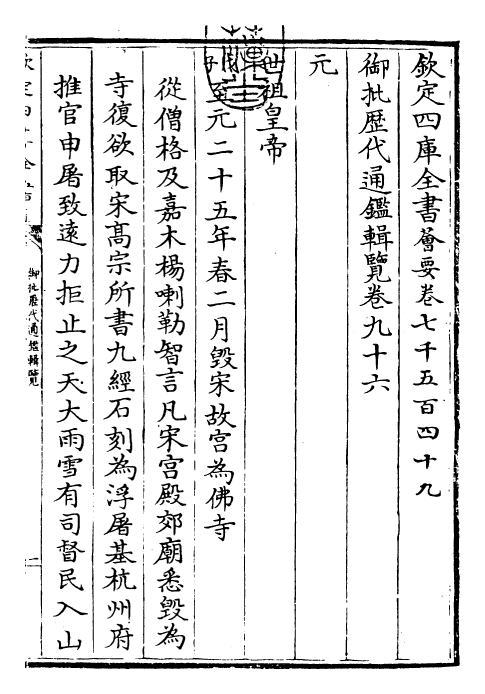 欽定四庫全書薈要卷七千五百四十九
御批歷代通鑑輯覽卷九十六
元
世祖皇帝
至元二十五年春二月毀宋故宮為佛寺
從僧格及嘉木楊喇勒智言凡宋宮殿郊廟悉毀為
寺復欲取宋高宗所書九經石刻為浮屠基杭州府
推官申屠致遠力拒止之天大雨雪有司督民入山
御批歷代通鑑輯覽